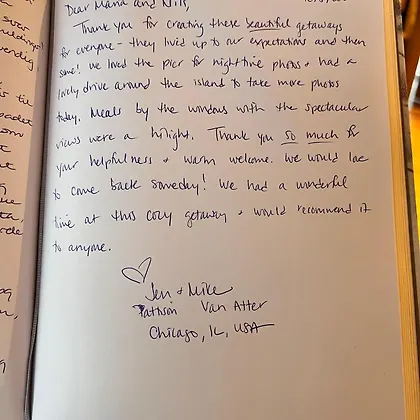 Dear Maria and Nils,
Thank you for creating these beautiful getaways
for everyone - they lived up to our expectations and then
some! We loved the pier for nighttime photos + had a
lovely drive around the island to take more photos
today. Meals by the windows with the spectacular
views were a hilight. Thank you so much for
your helpfulness + warm welcome. We would love
to come back someday! We had a wonderful
time at this cozy getaway + would recommend it
to anyone.
Jen + Mike
Pattison Van Atter
Chicago, IL, USA